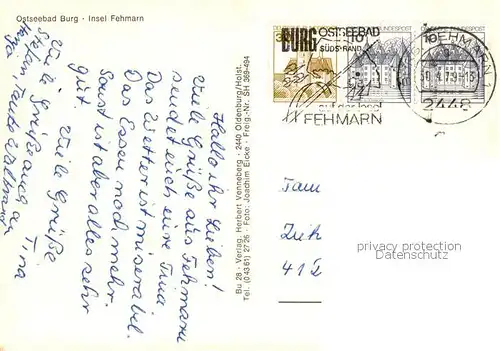 Ostseebad Burg - Insel Fehmarn
Hallo ihr Lieben!
Viele Grüße aus Fehmarn
sendet euch eure Tina
Das Wetter ist miserabel.
Das Essen noch mehr.
Sonst ist aber alles sehr
gut
Viele Grüße
Tina
Viele Grüße auch
Bu 28 - Verlag: Herbert Venneberg - 2440 Oldenburg/Holst.
Tel. (0 43 61) 27 26 - Foto: Joachim Eicke - Freig.-Nr. SH 369-494
BURG
OSTSEEBAD
SÜDSTRAND
auf der Insel
FEHMARN
FEHMARN
2448
BUNDESPOST
10
Fam
412
privacy protection
watermark